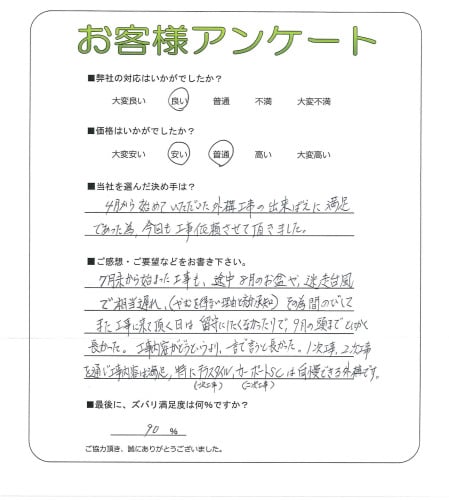 お客様アンケート
■弊社の対応はいかがでしたか？
大変良い 良い 普通 不満 大変不満
■価格はいかがでしたか？
大変安い 安い 普通 高い 大変高い
■当社を選んだ決め手は？
4月から始めていただいた外構工事の出来ばえに満足
であった為、今回も工事依頼させて頂きました。
■ご感想・ご要望などをお書き下さい。
7月末から始まった工事も、途中8月のお盆や、迷走台風
で相当遅れ、(やむを得ない理由と充分承知) その為間のびして
また工事に来て頂く日は留守にしたくなかったりで、9月の頭までとにかく
長かった。工事内容がどうというより、一言で言うと長かった。1次工事、2次工事
を通じ工事内容は満足、特にテラスタイル、カーポートSCは自慢できる外構です。
(一次工事) (二次工事)
■最後に、ズバリ満足度は何%ですか？
90 %
ご協力頂き、誠にありがとうございました。